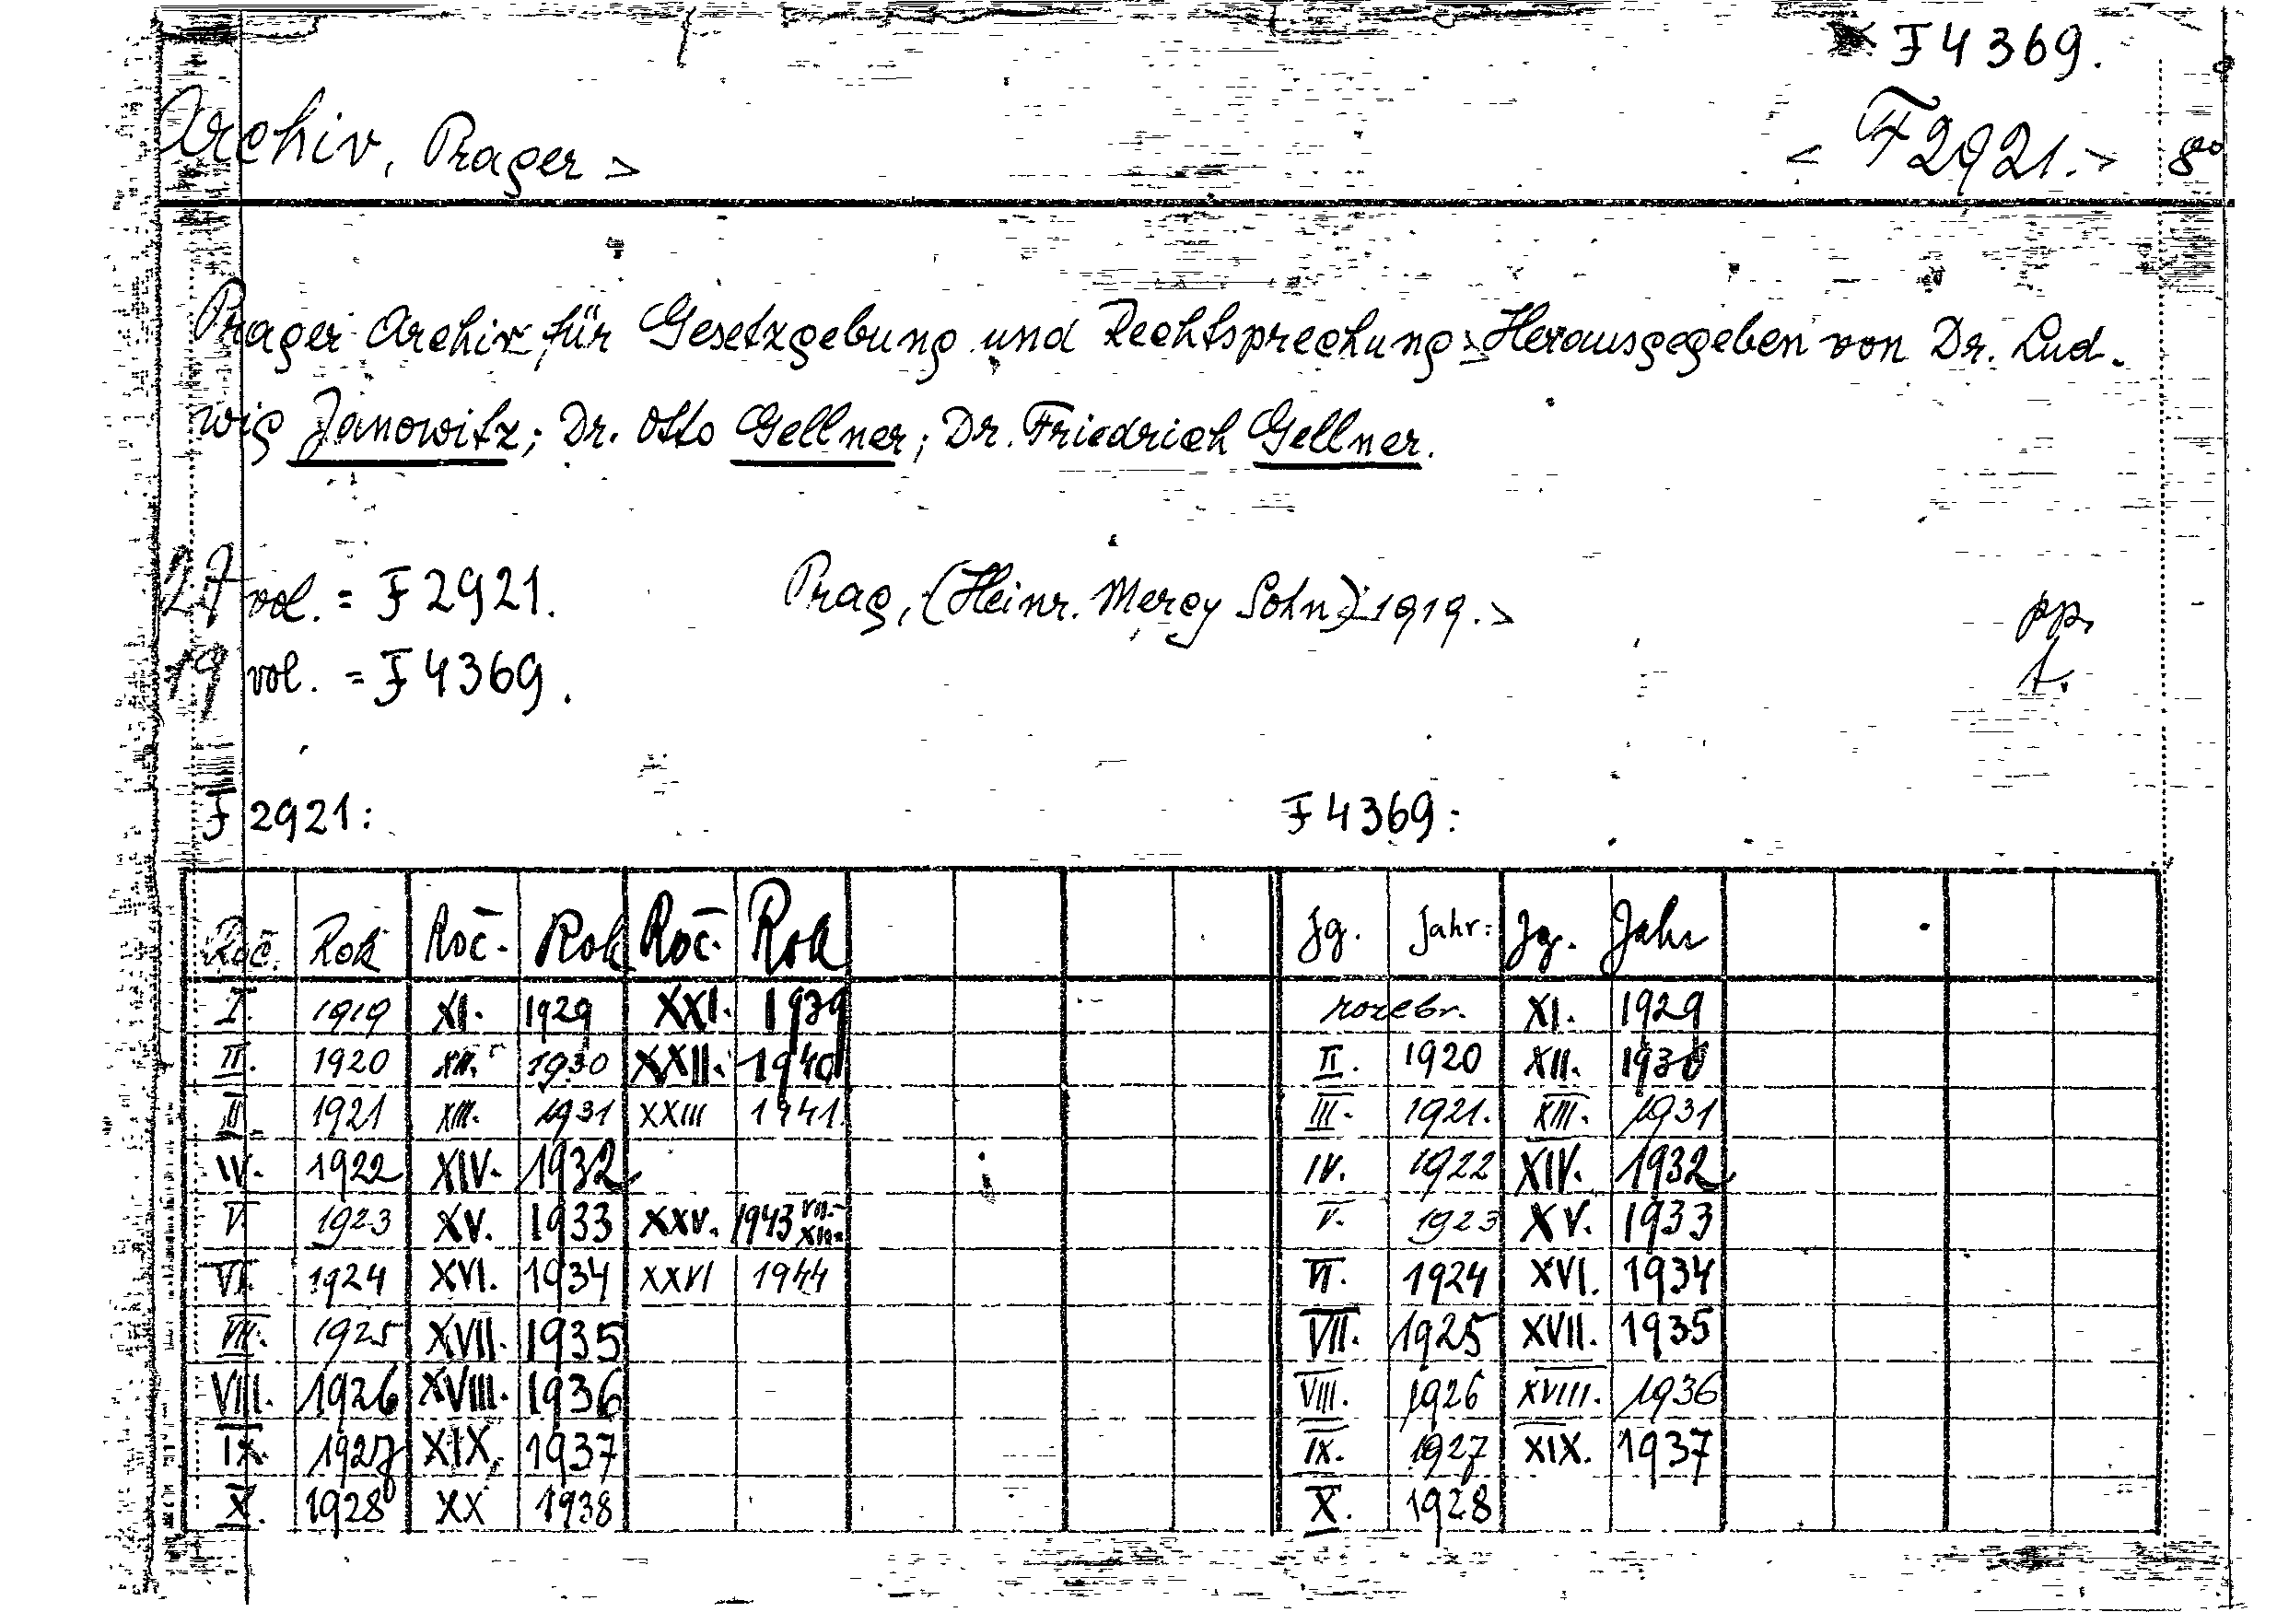 F 4369.
Archiv, Prager > < F 2921. > 8°
Prager Archiv für Gesetzgebung und Rechtsprechung > Herausgegeben von Dr. Lud-
wig Janowitz; Dr. Otto Gellner; Dr. Friedrich Gellner.
27 vol. = F 2921. Prag, (Heinr. Mercy Sohn) 1919. > pp.
19 vol. = F 4369. 1.
F 2921: F 4369:
Roč. Rok Roč. Rok Roč. Rok Jg. Jahr: Jg. Jahr
I. 1919 XI. 1929 XXI. 1939 rozebr. XI. 1929
II. 1920 XII. 1930 XXII. 1940 II. 1920 XII. 1930
III. 1921 XIII. 1931 XXIII 1941. III. 1921. XIII. 1931
IV. 1922 XIV. 1932 IV. 1922 XIV. 1932
V. 1923 XV. 1933 XXV. 1943 VII.- XII. V. 1923 XV. 1933
VI. 1924 XVI. 1934 XXVI 1944 VI. 1924 XVI. 1934
VII. 1925 XVII. 1935 VII. 1925 XVII. 1935
VIII. 1926 XVIII. 1936 VIII. 1926 XVIII. 1936
IX. 1927 XIX. 1937 IX. 1927 XIX. 1937
X. 1928 XX 1938 X. 1928